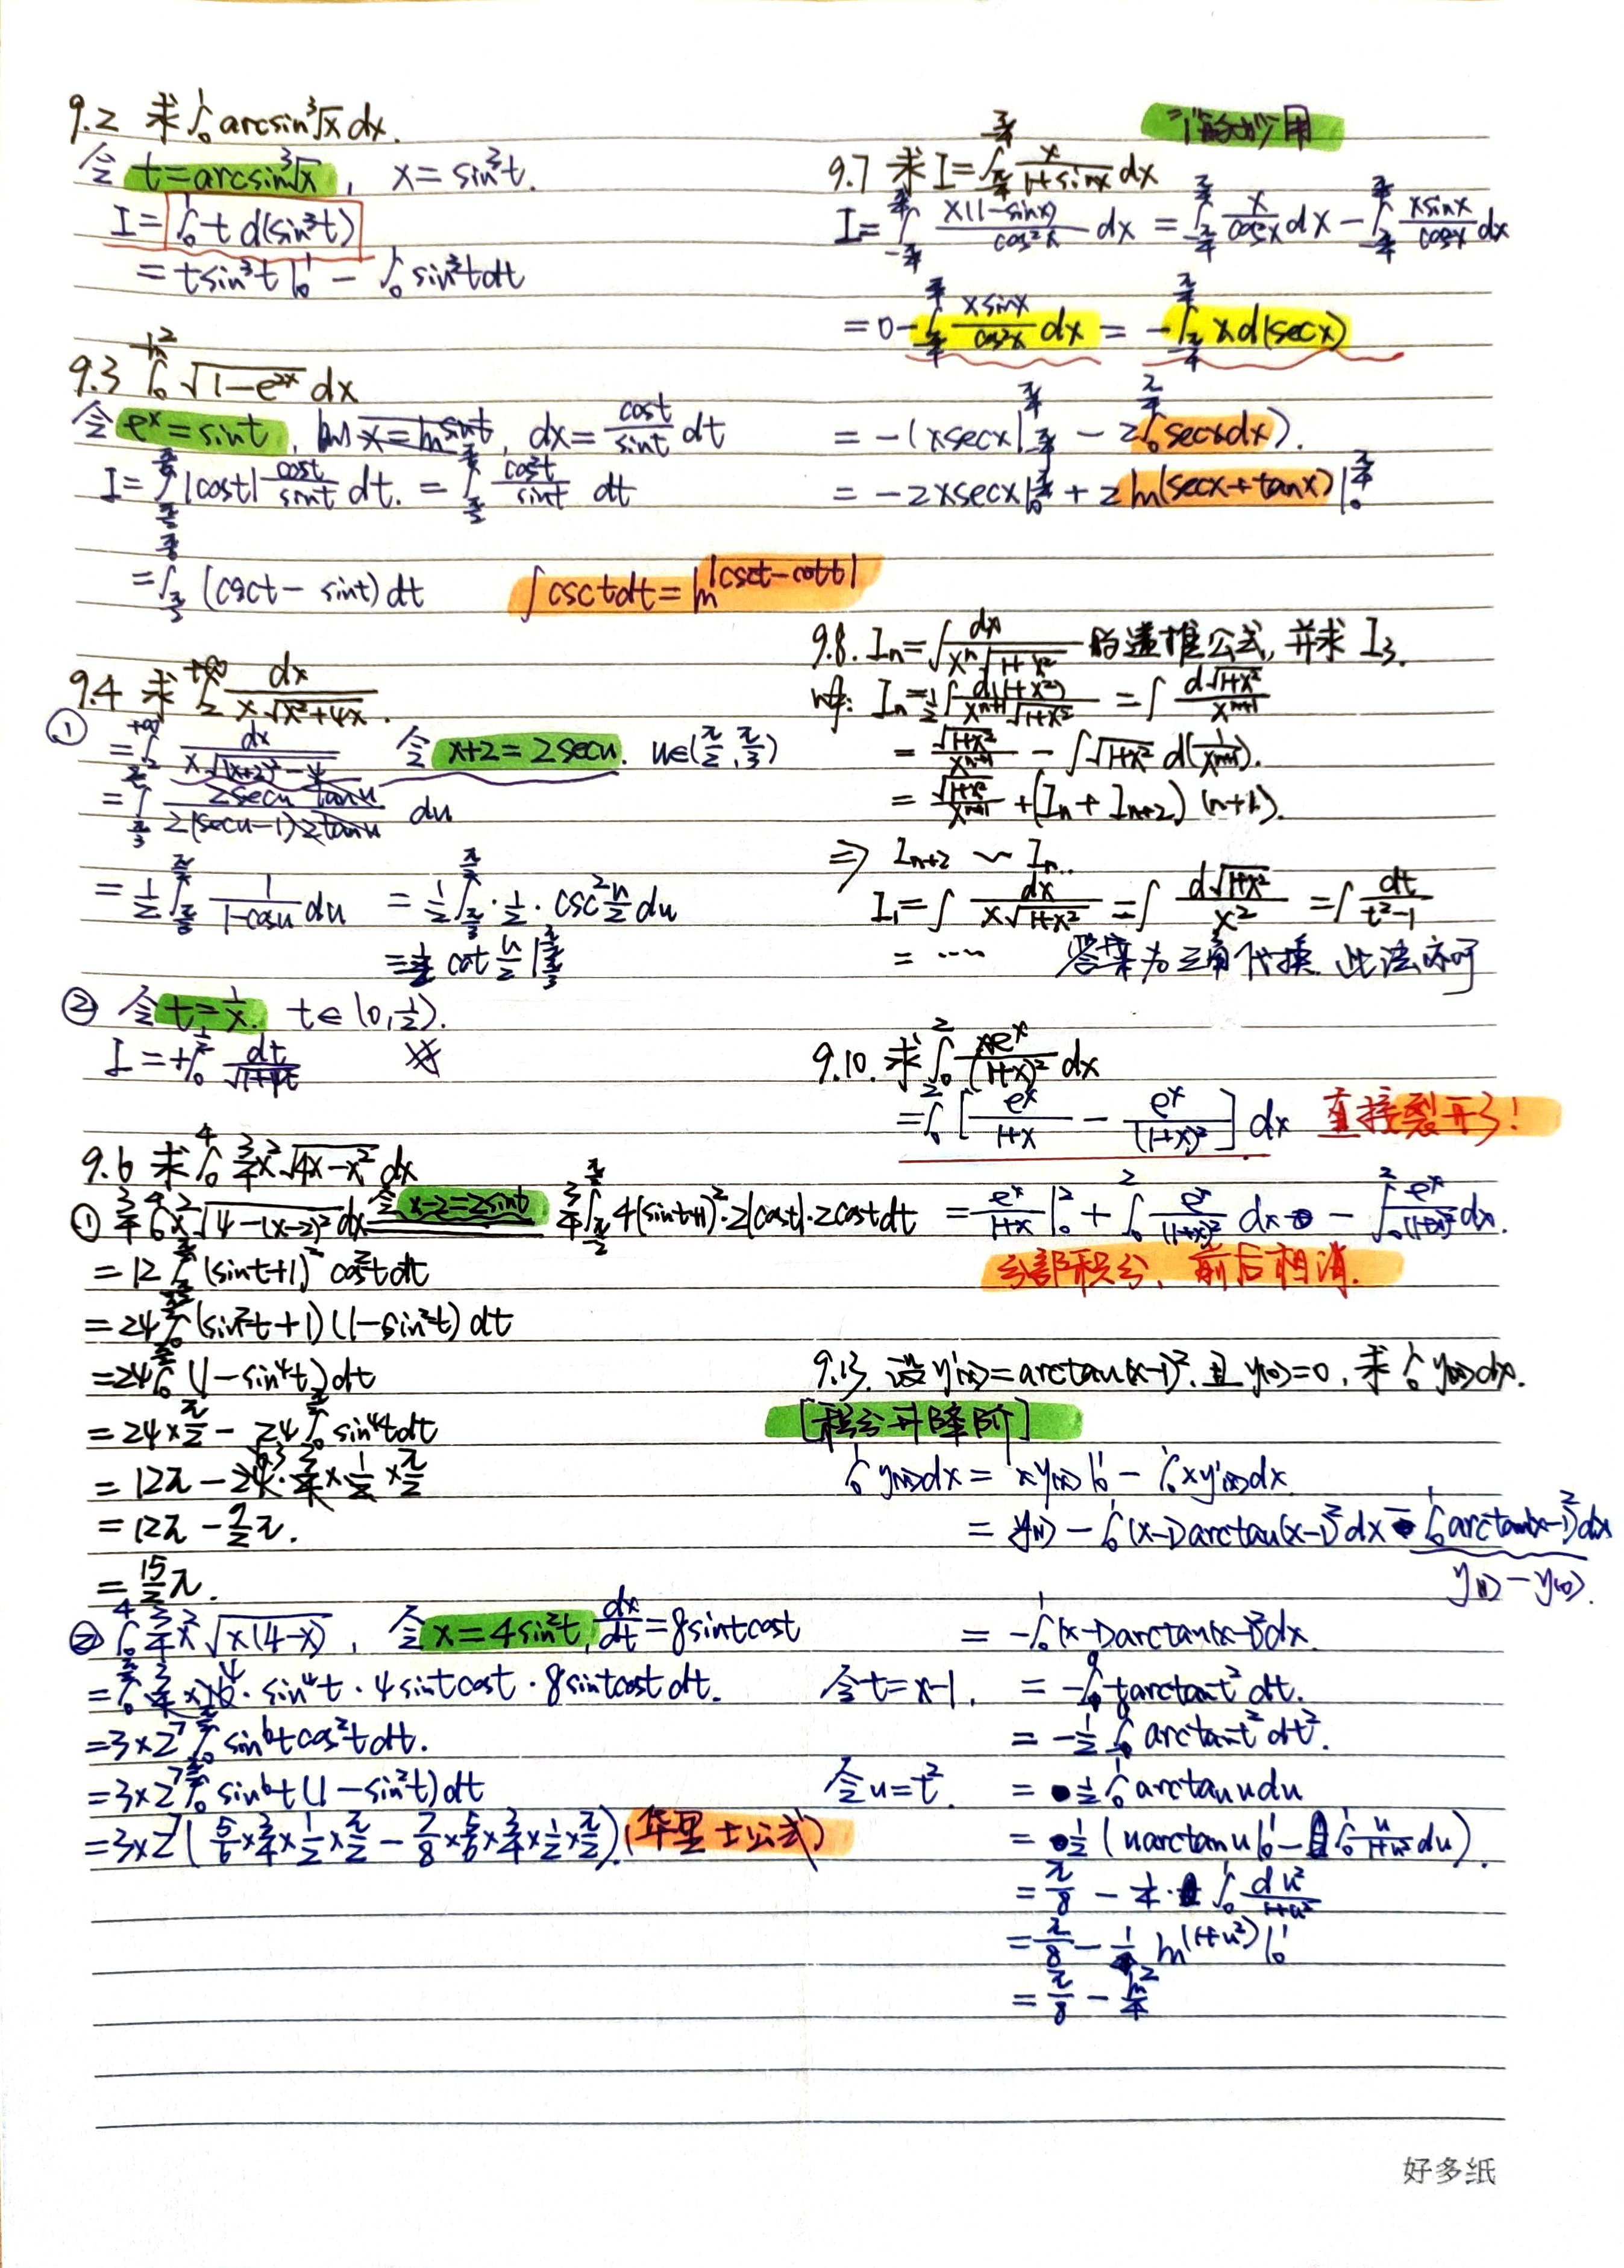 9.2 求∫₀¹ arcsin³√x dx.
令 t=arcsin³√x, x=sin³t.
I=∫₀¹ t d(sin³t)
=tsin³t|₀¹ - ∫₀¹ sin³tdt
9.3 ∫₀^{-ln2} √(1-e^{2x}) dx
令 e^x=sint, 则 x=ln sint, dx=cost/sint dt
I=∫_{π/2}^{π/6} |cost| cost/sint dt. = ∫_{π/2}^{π/6} cos²t/sint dt
=∫_{π/2}^{π/6} (csct - sint) dt ∫csctdt=ln|csct-cott|
9.4 求∫₂^{+∞} dx/(x√(x²+4x)).
① =∫₂^{+∞} dx/(x√((x+2)²-4)) 令 x+2=2secu. u∈(π/2,π/3)
=∫_{π/3}^{π/2} 2secu tanu/(2(secu-1)·2tanu) du
=1/2∫_{π/3}^{π/2} 1/(1-cosu) du = 1/2∫_{π/3}^{π/2}·1/2·csc²u/2 du
=1/2 cot u/2 |_{π/3}^{π/2}
② 令 t=1/x. t∈(0,1/2).
I=+∫₀^{1/2} dt/√(1+4t)
9.6 求∫₀⁴ 3/4x²√(4x-x²) dx
① 3/4∫₀⁴x²√(4-(x-2)²)dx 令 x-2=2sint 3/4∫_{-π/2}^{π/2} 4(sint+1)²·2|cost|·2costdt
=12∫_{-π/2}^{π/2}(sint+1)²cos²tdt
=24∫₀^{π/2}(sin²t+1)(1-sin²t)dt
=24∫₀^{π/2}(1-sin⁴t)dt
=24×π/2 - 24∫₀^{π/2}sin⁴tdt
=12π-24·3/4×1/2×π/2
=12π-9/2π.
=15/2π.
② ∫₀⁴ 3/4x²√(x(4-x)), 令 x=4sin²t, dx/dt=8sintcost
=∫₀^{π/2} 3/4×16·sin⁴t·4sintcost·8sintcostdt.
=3×2⁷∫₀^{π/2}sin⁶tcos²tdt.
=3×2⁷∫₀^{π/2}sin⁶t(1-sin²t)dt
=3×2⁷(5/6×3/4×1/2×π/2-7/8×5/6×3/4×1/2×π/2).(华里士公式)
妙用
9.7 求I=∫_{-π/4}^{π/4} x/(1+sinx) dx
I=∫_{-π/4}^{π/4} x(1-sinx)/cos²x dx = ∫_{-π/4}^{π/4} x/cos²x dx - ∫_{-π/4}^{π/4} xsinx/cos²x dx
=0-∫_{-π/4}^{π/4} xsinx/cos²x dx = -∫_{-π/4}^{π/4} xd(secx)
=-(xsecx|_{-π/4}^{π/4} - 2∫₀^{π/4}secxdx).
=-2xsecx|₀^{π/4}+2ln(secx+tanx)|₀^{π/4}
9.8. Iₙ=∫dx/(xⁿ√(1+x²)) 的递推公式,并求 I₃.
解: Iₙ=1/2∫d(1+x²)/(xⁿ⁺¹√(1+x²)) =∫d√(1+x²)/xⁿ⁺¹
=√(1+x²)/xⁿ⁺¹ - ∫√(1+x²) d(1/xⁿ⁺¹).
=√(1+x²)/xⁿ⁺¹+(Iₙ+Iₙ₊₂)(n+1).
⇒ Iₙ₊₂ ~ Iₙ.
I₁=∫dx/(x√(1+x²)) =∫d√(1+x²)/x² =∫dt/(t²-1)
=⋯ 答案为三角代换 此法亦可
9.10. 求∫₀² xe^x/(1+x)² dx
=∫₀²[e^x/(1+x) - e^x/(1+x)²]dx 直接裂开!
=e^x/(1+x)|₀²+∫₀² e^x/(1+x)² dx - ∫₀² e^x/(1+x)² dx.
分部积分,前后相消.
9.13. 设y'(x)=arctan(x-1)²,且y(0)=0,求∫₀¹y(x)dx.
[积分升降阶]
∫₀¹y(x)dx=xy(x)|₀¹-∫₀¹xy'(x)dx
=y(1)-∫₀¹(x-1)arctan(x-1)²dx-∫₀¹arctan(x-1)²dx
y(1)-y(0).
=-∫₀¹(x-1)arctan(x-1)²dx.
令t=x-1, =-∫₋₁⁰tarctant²dt.
=-1/2∫₋₁⁰arctant²dt².
令u=t². =1/2∫₀¹arctanudu
=1/2(uarctanu|₀¹-∫₀¹u/(1+u²)du).
=π/8-1/4·∫₀¹du²/(1+u²)
=π/8-1/4ln(1+u²)|₀¹
=π/8-ln2/4
好多纸